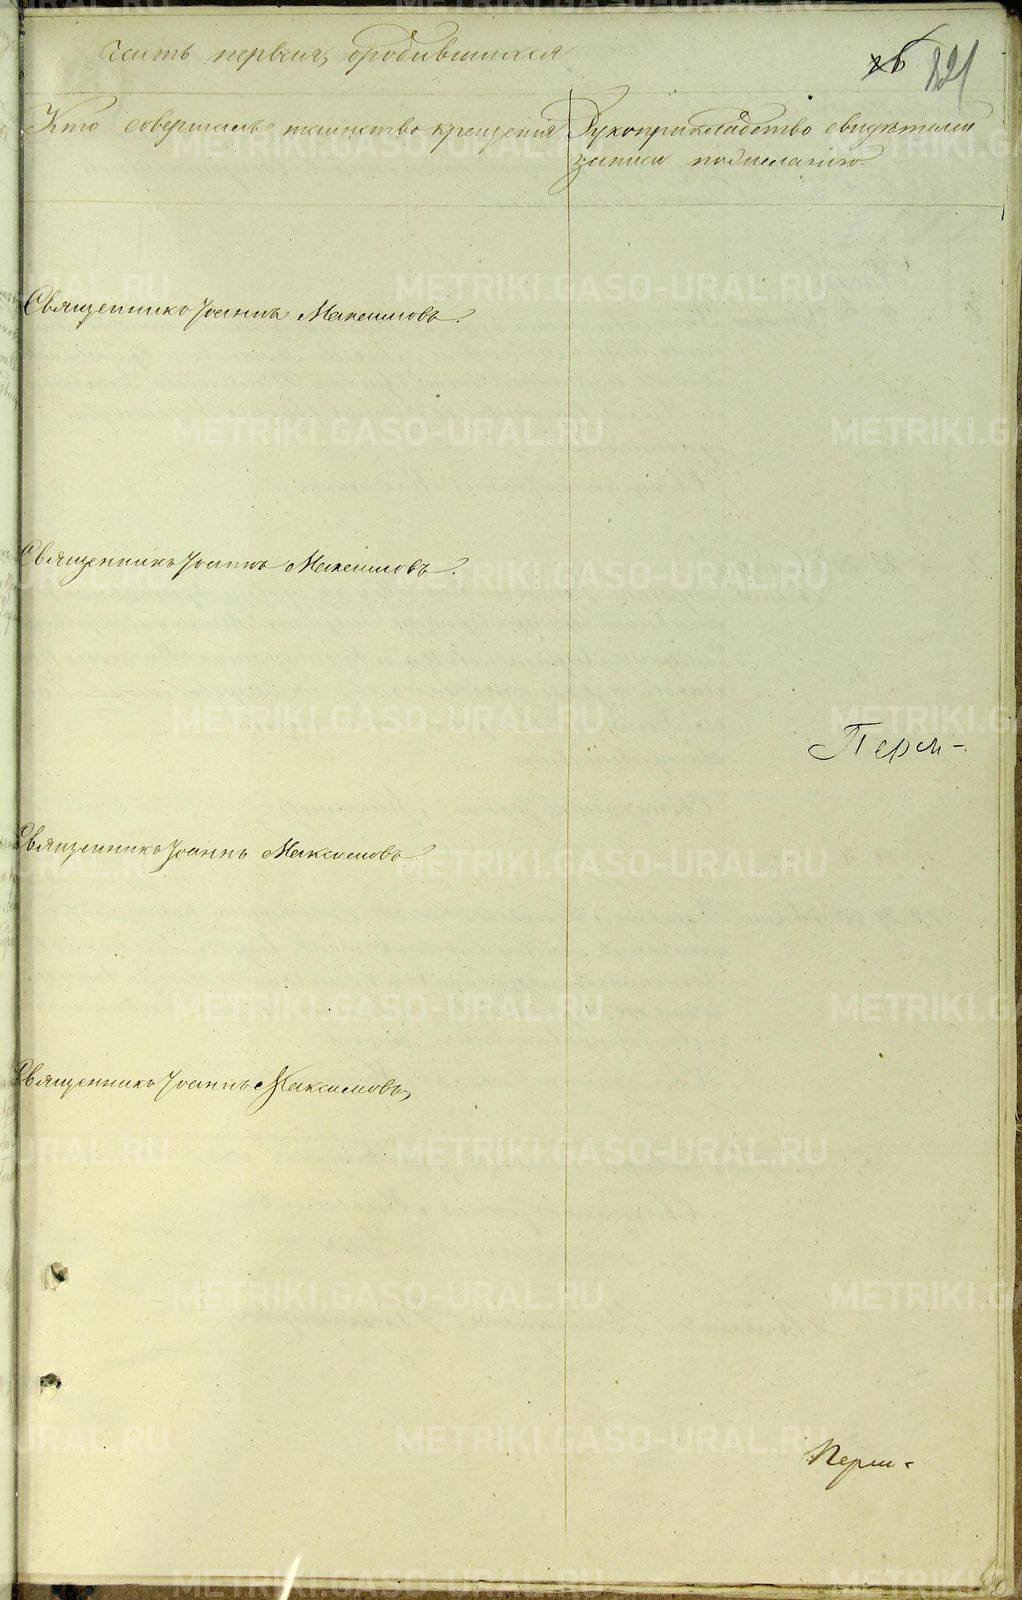 часть первая, о родившихся
121
Кто совершалъ таинство крещения
Рукоприкладство свидѣтелей
записи по желанию
Священникъ Іоаннъ Максимовъ.
Священникъ Іоаннъ Максимовъ.
Перм-
Священникъ Іоаннъ Максимовъ
Священникъ Іоаннъ Максимовъ,
Перм-
METRIKI.GASO-URAL.RU